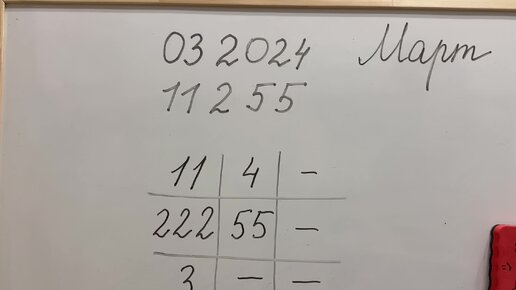 03 2024 Март
11 2 55
11 4 –
222 55 –
3 – –